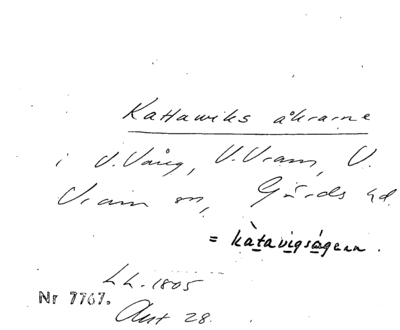 Kattawiks åkrarne
i V. Vång, V. Vram, V.
Vram sn, Gärds hd.
= kàtavigságerna.
LL. 1805
Nr 7767. Akt 28.